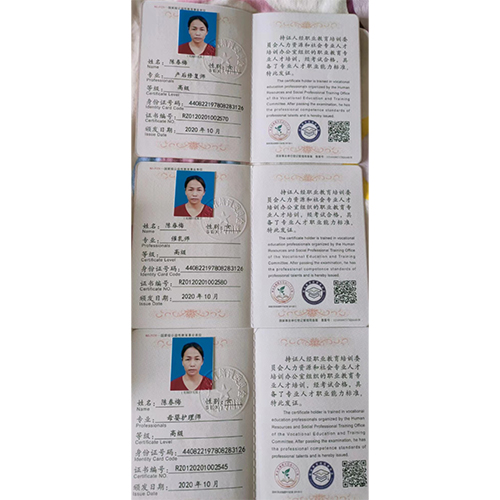 姓名: 陈春梅 性别: 女
Name SEX
专业: 产后修复师
Professionals
等级: 高级
Certificate Level
身份证号码: 440822197808283126
Identity Card Code
证书编号: RZ0120201002570
Certificate NO.
颁发日期: 2020 年 10 月
Issue Date
持证人经职业教育培训委
员会人力资源和社会专业人才
培训办公室组织的职业教育专
业人才培训, 经考试合格, 具
备了专业人才职业能力标准,
特此发证。
The certificate holder is trained in vocational
education professionals organized by the Human
Resources and Social Professional Training Office
of the Vocational Education and Training
Committee. After passing the examination, he has
the professional competence standards of
professional talents and is hereby issued.
姓名: 陈春梅 性别: 女
Name SEX
专业: 催乳师
Professionals
等级: 高级
Certificate Level
身份证号码: 440822197808283126
Identity Card Code
证书编号: RZ0120201002560
Certificate NO.
颁发日期: 2020 年 10 月
Issue Date
持证人经职业教育培训委
员会人力资源和社会专业人才
培训办公室组织的职业教育专
业人才培训, 经考试合格, 具
备了专业人才职业能力标准,
特此发证。
The certificate holder is trained in vocational
education professionals organized by the Human
Resources and Social Professional Training Office
of the Vocational Education and Training
Committee. After passing the examination, he has
the professional competence standards of
professional talents and is hereby issued.
姓名: 陈春梅 性别: 女
Name SEX
专业: 母婴护理师
Professionals
等级: 高级
Certificate Level
身份证号码: 440822197808283126
Identity Card Code
证书编号: RZ0120201002545
Certificate NO.
颁发日期: 2020 年 10 月
持证人经职业教育培训委
员会人力资源和社会专业人才
培训办公室组织的职业教育专
业人才培训, 经考试合格, 具
备了专业人才职业能力标准,
特此发证。
The certificate holder is trained in vocational
education professionals organized by the Human
Resources and Social Professional Training Office
of the Vocational Education and Training
Committee. After passing the examination, he has
the professional competence standards of
professional talents and is hereby issued.